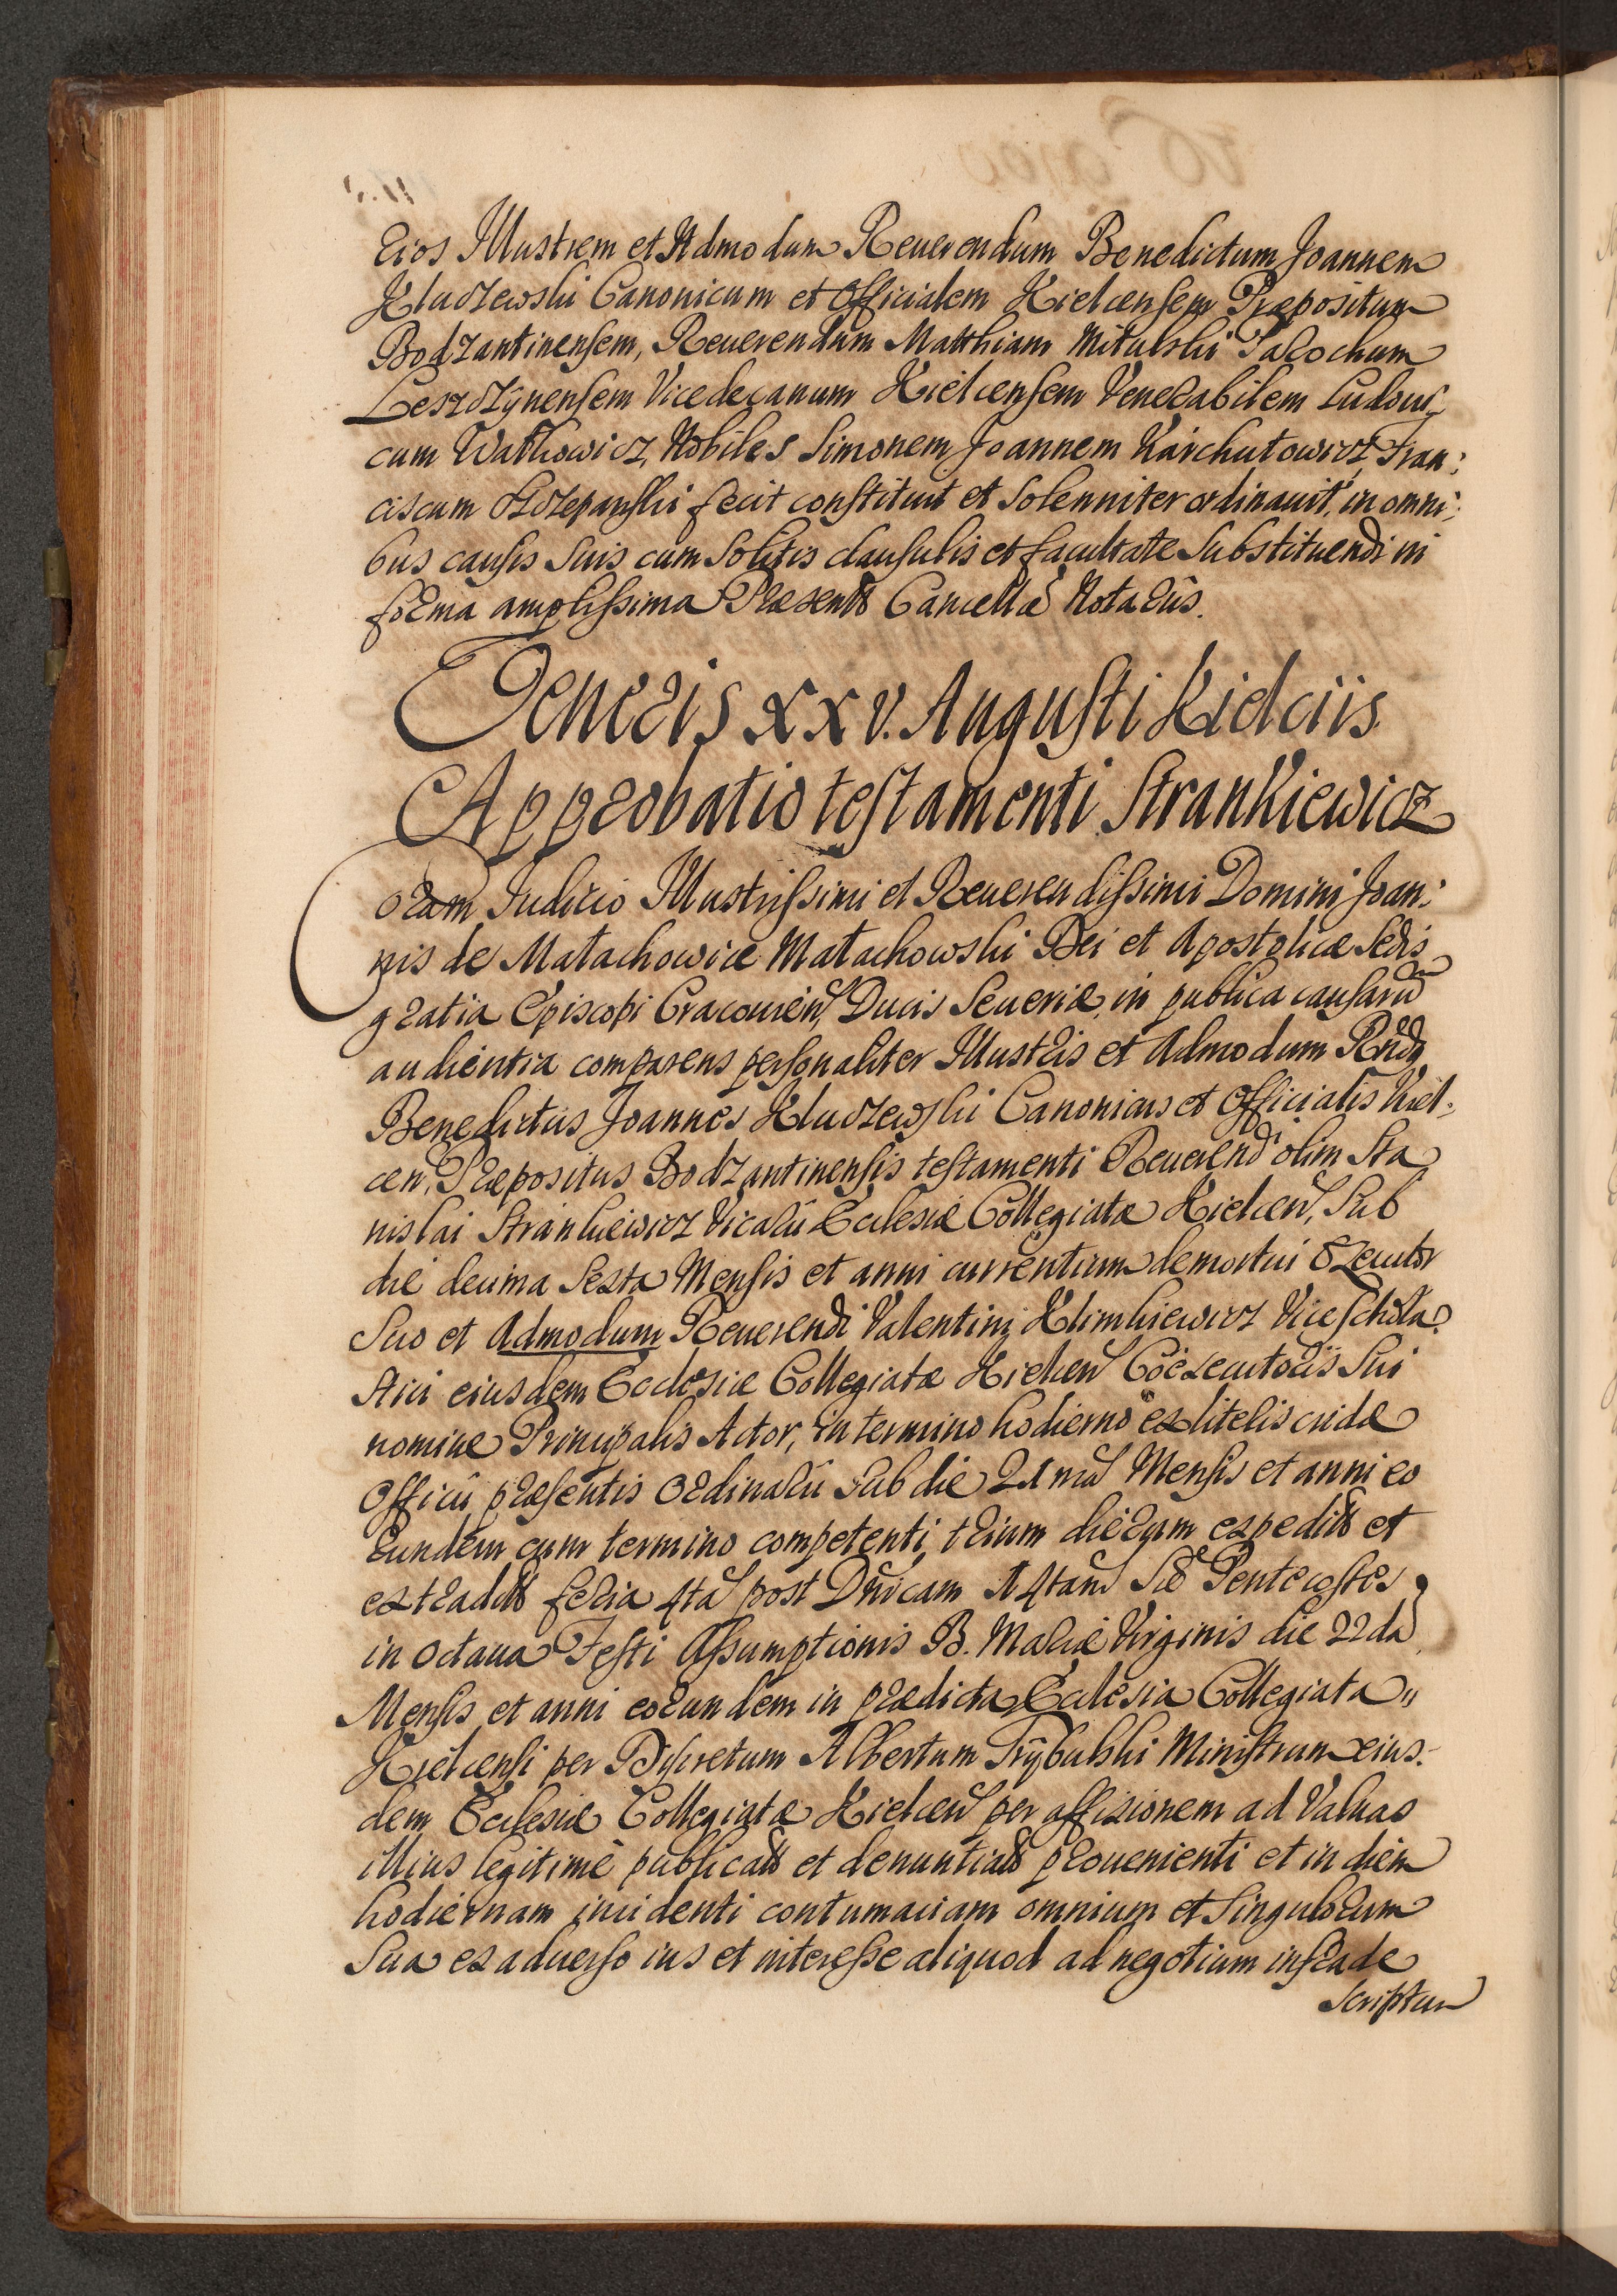 rios Illustrem et Admodum Reuerendum Benedictum Joannem
Kluczewski Canonicum et Officialem Kielcensem Præpositum
Bodzantinensem, Reuerendum Matthiam Mitulski Parochum
Leszczynensem Vicedecanum Kielcensem Venerabilem Ludoui-
cum Watkowicz, Nobiles Simonem Joannem Karchutowicz Fran:
ciscum Szczepanski fecit constituit et Solenniter ordinauit, in omni:
bus causis suis cum Solitis clausulis et facultate Substituendi in
forma amplissima Præsentt Cancellæ Notariis.
Veneris xxv. Augusti Kielciis
Approbatio testamenti Strankiewicz
Coram Iudicio Illustrissimi et Reuerendissimi Domini Joan:
nis de Matachowice Matachowski Dei et Apostolicæ Sedis
gratia Episcopi Cracouien, Ducis Seueriæ, in publica causarū
audientia comparens personaliter Illustris et Admodum Rndꝰ
Benedictus Joannes Kluczewski Canonicus et Officialis Kiel-
cen, Præpositus Bodzantinensis testamenti Reuerendi olim Sta
nislai Strankiewicz Vicarii Ecclesiæ Collegiatæ Kielcen, Sub
die decima Sexta Mensis et anni currentium demortui Executor
Suo et Admodum Reuerendi Valentini Klimkiewicz Viceschola
stici eiusdem Ecclesiæ Collegiatæ Kielcen Coexecutoris Sui
nomine Principalis Actor, in termino hodierno ex literis cridæ
Officii præsentis Ordinarii Sub die 21 ma Mensis et anni eo
rundem cum termino competenti, trium dierum expeditt et
extraditt feria 4ta post Dnicam 14tam Sæ Pentecostes
in octaua Festi Assumptionis B. Mariæ Virginis die 22da
Mensis et anni eorundem in prædicta Ecclesia Collegiata
Kielcensi per Discretum Albertum Trybulski Ministrum eius-
dem Ecclesiæ Collegiatæ Kielcen per affixionem ad Valuas
illius legitimè publicatt et denuntiatt prouenienti et in diem
hodiernam incidenti contumaciam omnium et Singulorum
Sua ex aduerso ius et interesse aliquod ad negotium infrade
Scriptum